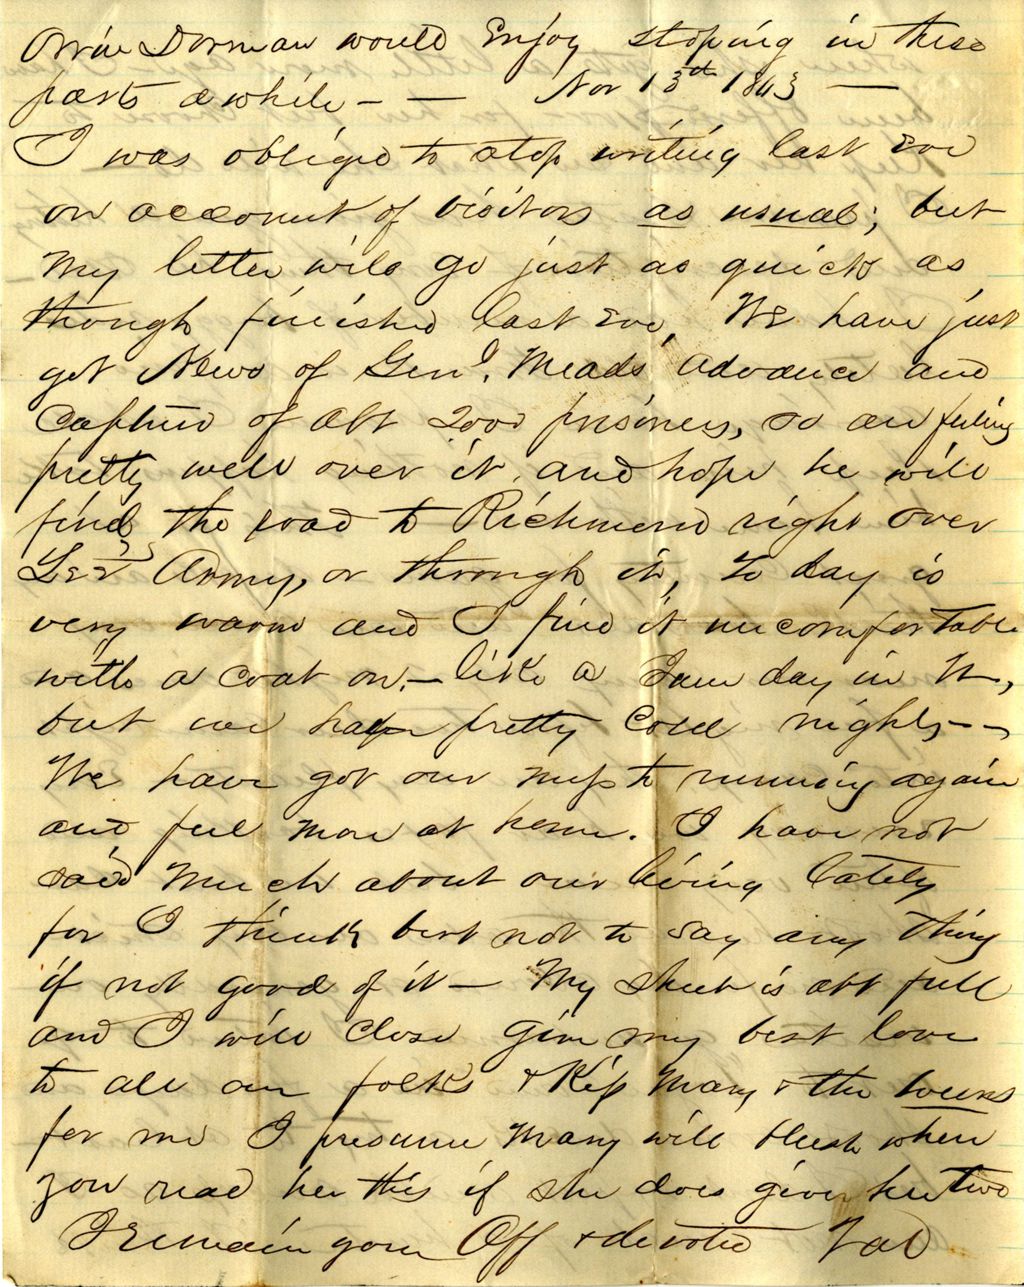 Orrin Dorman would Enjoy stoping in these
parts awhile — — Nov 13th 1863 —
I was obliged to stop writing last Eve
on account of visitors as usual; but
My letter will go just as quick as
though finished last Eve, We have just
got News of Genl. Meads' advance and
Capture of abt 2000 prisoners, so are feeling
pretty well over it, and hope he will
find the road to Richmond right over
Lees Army, or through it, to day is
very warm and I find it uncomfortable
with a coat on. — like a day in
but we have pretty cold nights — —
We have got our mess to running again
and feel more at home. I have not
said Much about our living lately
for I think best not to say any thing
if not good of it — My sheet is abt full
and I will close Give my best love
to all our folks & Kiss Mary & the
for me I presume Mary will blush when
you read her this if she does give her two
I remain your Aff & devoted